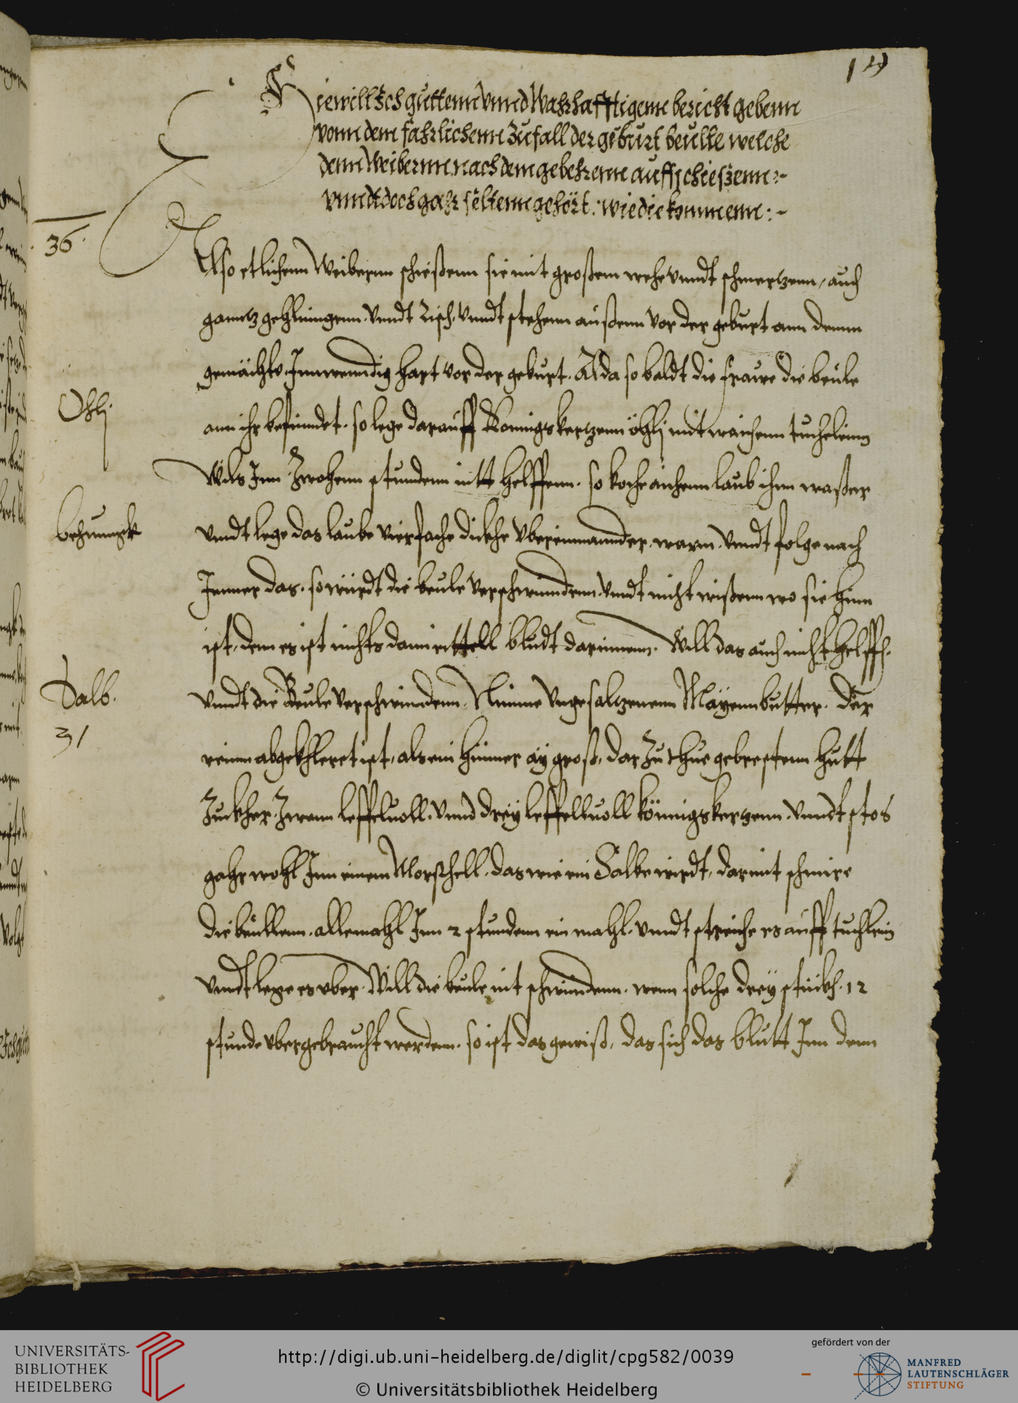 19
Hie will Ich guttenn Vnnd Wahrhafftigenn bericht gebenn
vonn dem fährlichenn Zufall der geburt beulle welche
denn Weibernn nach dem gebehrenn auffschießenn :-
vnndt doch gahr seltenn gehört . wie die kommenn : -
36.
Also etlichenn Weibernn schießenn sie mit großem wehe vnndt schmertzenn, auch
gantz gehlingenn. vnndt risch. vnndt stehenn außenn vor der geburt ann denn
gemächt. Innwenndig hart vor der geburt. Alda so baldt die frauwe die beule
Ohlj
ann ihr befindet. so lege darauff Konnigskertzenn öhlj mit waichenn tuchelinn
Wils Inn Zwohenn stundenn nitt helffenn. so koche aichenn laub ihnn waßer
behunngk
vnndt lege das laube vierfache dickhe vbereinnannder. warm. vnndt folge nach
Immer das. so würdt die beule verschwinndenn. vnndt nicht wißenn wo sie hinn
ist, denn es ist nichts dann eittell bludt darinnenn. Will das auch nicht helffen.
Salb.
31
vnndt die Beule verschwindenn. Nimme vngesaltzenenn Mayenn butter. der
reinn abgekhleret ist, als ein hünner ay groß, dar zu thue gebrestenn hutt
Zuckher. Zwenn leffeluoll. vnnd drey leffelluoll könnigskerzenn. vnndt stos
gahr wohl Inn einem Morschell. das wie ein Salbe wirdt, darmit schmire
die beüllenn. allemahl Inn 2 stundenn ein mahl. vnndt streiche es auff tuchlein
vnndt lege es vber. Will die beule nit schwindenn. wenn solche drey stückh. 12
stunde vbergebraucht werdenn. so ist das gewiß, das sich das blutt Inn denn
UNIVERSITÄTS-
BIBLIOTHEK
HEIDELBERG
http://digi.ub.uni-heidelberg.de/diglit/cpg582/0039
© Universitätsbibliothek Heidelberg
gefördert von der
MANFRED
LAUTENSCHLÄGER
STIFTUNG